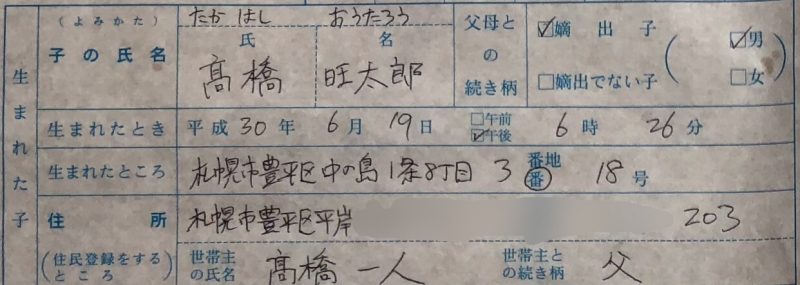 (よみかた) たか はし おうたろう 父母と ☑嫡出子
氏 名 の ( ☑男
子の氏名 髙橋 旺太郎 続き柄 □嫡出でない子 □女 )
生まれた子
生まれたとき 平成30年 6月 19日 □午前 ☑午後 6時 26分
生まれたところ 札幌市豊平区中の島1条8丁目 3 番地 番 18号
住所 札幌市豊平区平岸 203
(住民登録をするところ) 世帯主の氏名 髙橋 一人 世帯主との続き柄 父